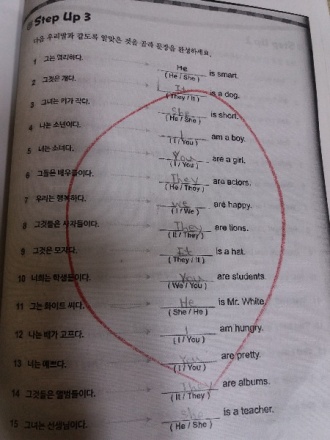 Step Up 3
다음 우리말과 같도록 알맞은 것을 골라 문장을 완성하세요.
1 그는 영리하다. He is smart.
(He / She)
2 그것은 개다. It is a dog.
(They / It)
3 그녀는 키가 작다. She is short.
(He / She)
4 나는 소년이다. I am a boy.
(I / You)
5 너는 소녀다. You are a girl.
(I / You)
6 그들은 배우들이다. They are actors.
(He / They)
7 우리는 행복하다. We are happy.
(I / We)
8 그것들은 사자들이다. They are lions.
(It / They)
9 그것은 모자다. It is a hat.
(They / It)
10 너희는 학생들이다. You are students.
(We / You)
11 그는 화이트 씨다. He is Mr. White.
(She / He)
12 나는 배가 고프다. I am hungry.
(I / You)
13 너는 예쁘다. You are pretty.
(I / You)
14 그것들은 앨범들이다. They are albums.
(It / They)
15 그녀는 선생님이다. She is a teacher.
(He / She)